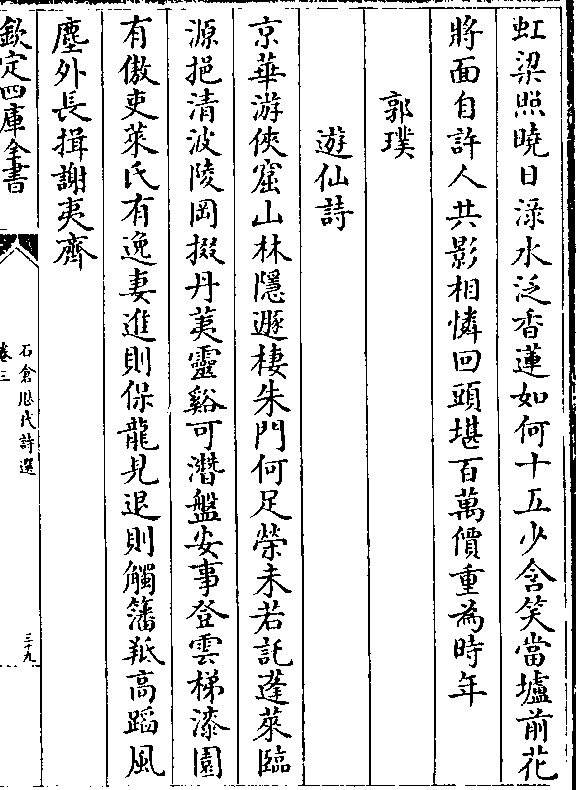 虹梁照曉日渌水泛香蓮如何十五少含笑當壚前花
將面自許人共影相憐回頭堪百萬價重為時年
郭璞
遊仙詩
京華游俠窟山林隱遯棲朱門何足榮未若託蓬萊臨
源挹清波陵岡掇丹荑靈谿可潛盤安事登雲梯漆園
有傲吏萊氏有逸妻進則保龍見退則觸籓羝高蹈風
塵外長揖謝夷齊
欽定四庫全書
石倉歷代詩選
卷三
三十九